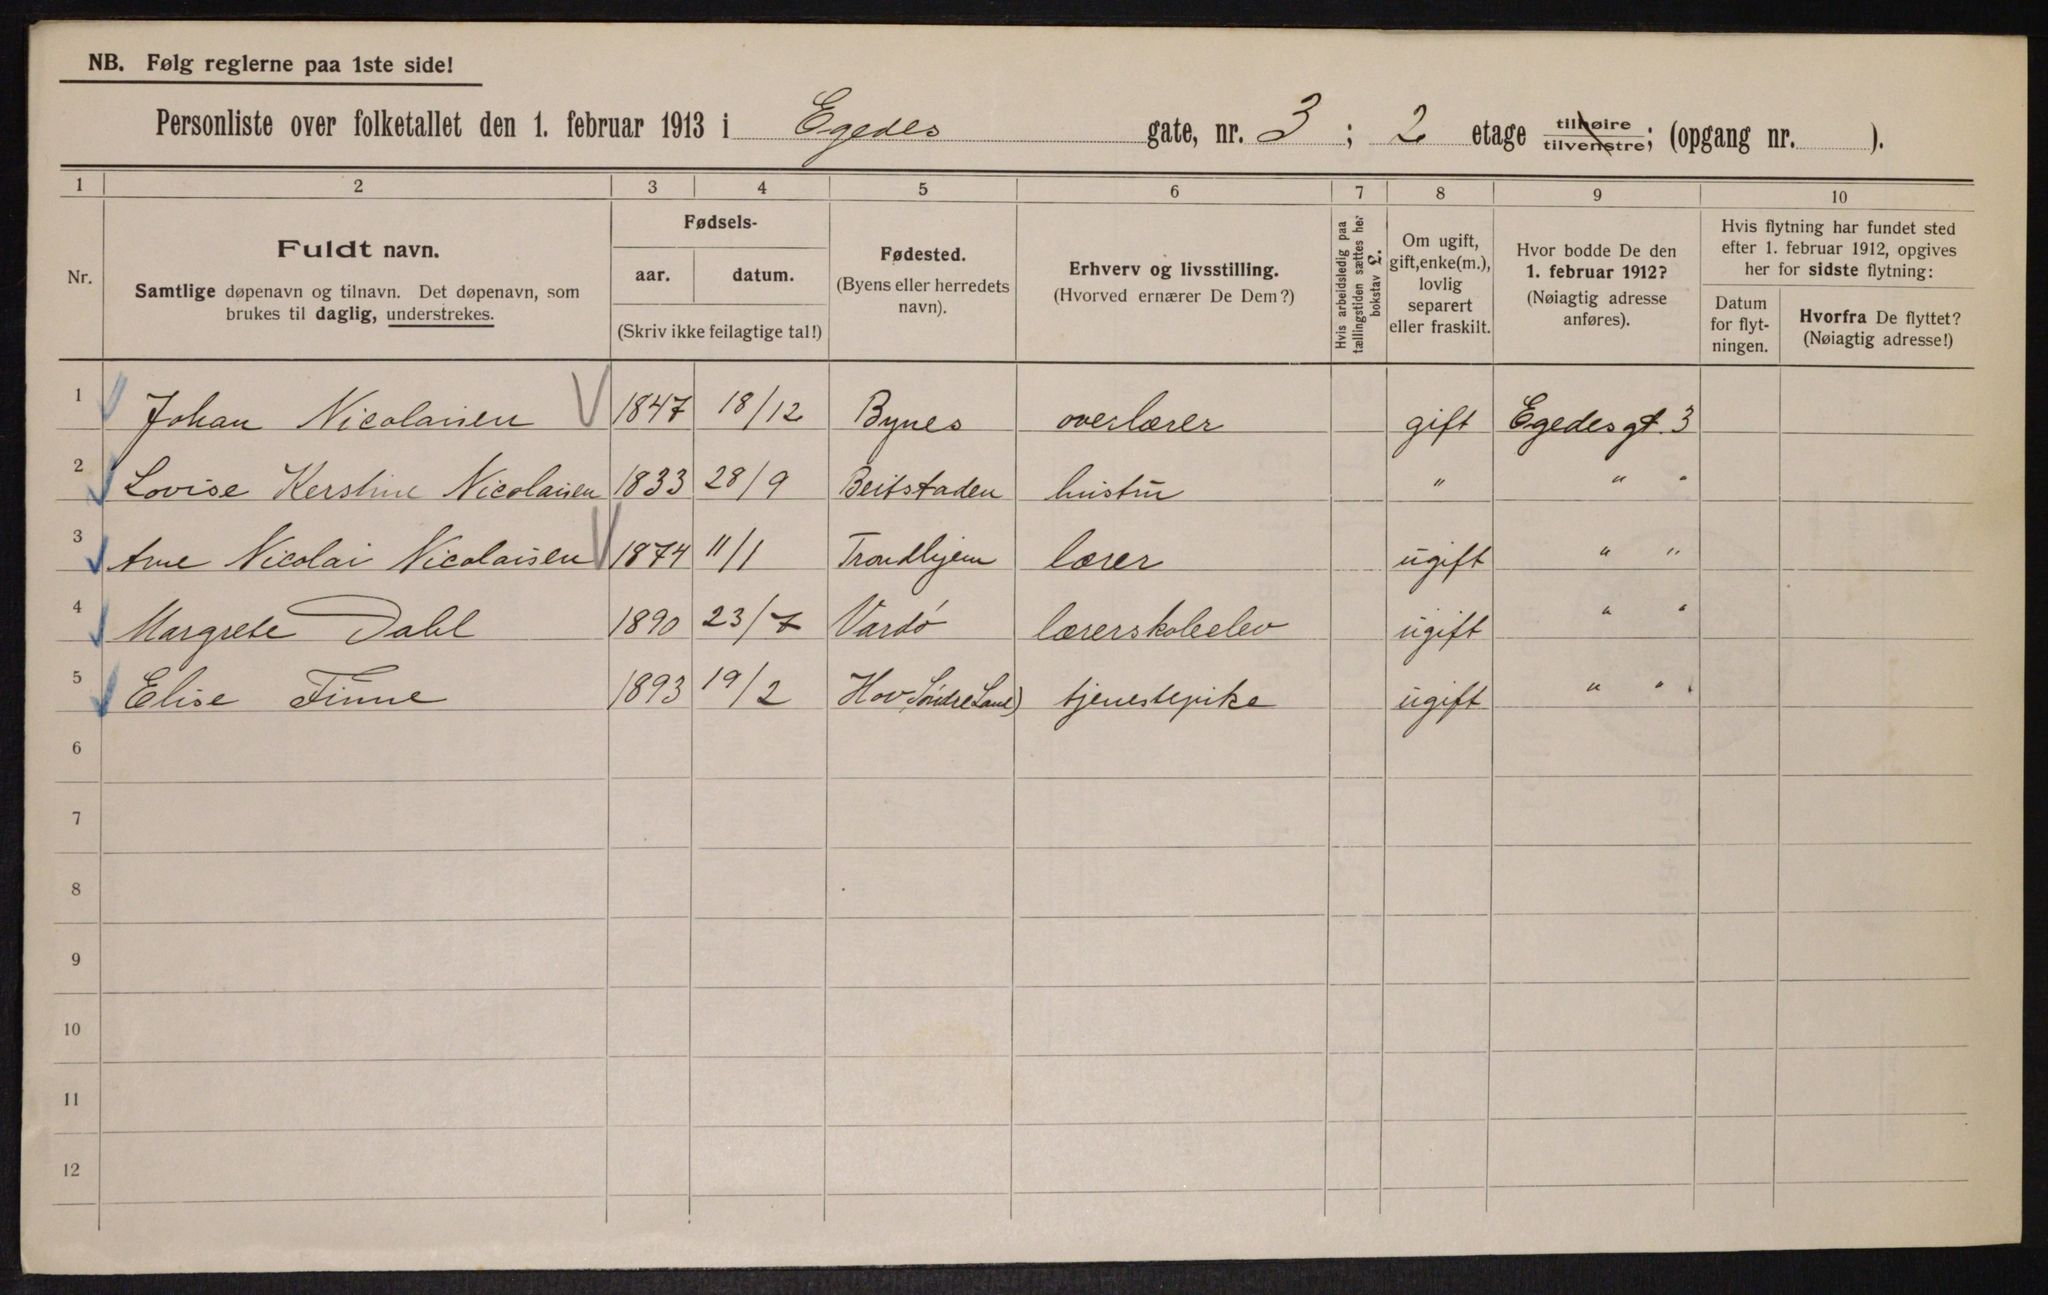 NB. Følg reglerne paa 1ste side!
Personliste over folketallet den 1. februar 1913 i Egedes gate, nr. 3 ; 2 etage tilhøire tilvenstre; (opgang nr. ).
1 2 3 4 5 6 7 8 9 10
Nr.
Fuldt navn.
Samtlige døpenavn og tilnavn. Det døpenavn, som
brukes til daglig, understrekes.
Fødsels-
aar. datum.
(Skriv ikke feilagtige tal!)
Fødested.
(Byens eller herredets
navn).
Erhverv og livsstilling.
(Hvorved ernærer De Dem?)
Hvis arbeidsledig paa
tællingstiden sættes her
bokstav L.
Om ugift,
gift, enke(m.),
lovlig
separert
eller fraskilt.
Hvor bodde De den
1. februar 1912?
(Nøiagtig adresse
anføres).
Hvis flytning har fundet sted
efter 1. februar 1912, opgives
her for sidste flytning:
Datum
for flyt-
ningen.
Hvorfra De flyttet?
(Nøiagtig adresse!)
1 Johan Nicolaisen 1847 18/12 Bynes overlærer gift Egedes gt. 3
2 Lovise Kerstine Nicolaisen 1833 28/9 Beitstaden hustru " " "
3 Arne Nicolai Nicolaisen 1874 11/1 Trondhjem lærer ugift " "
4 Margrete Dahl 1890 23/7 Vardø lærerskoleelev ugift " "
5 Elise Finne 1893 19/2 Hov Søndre Land) tjenestepike ugift " "
6
7
8
9
10
11
12